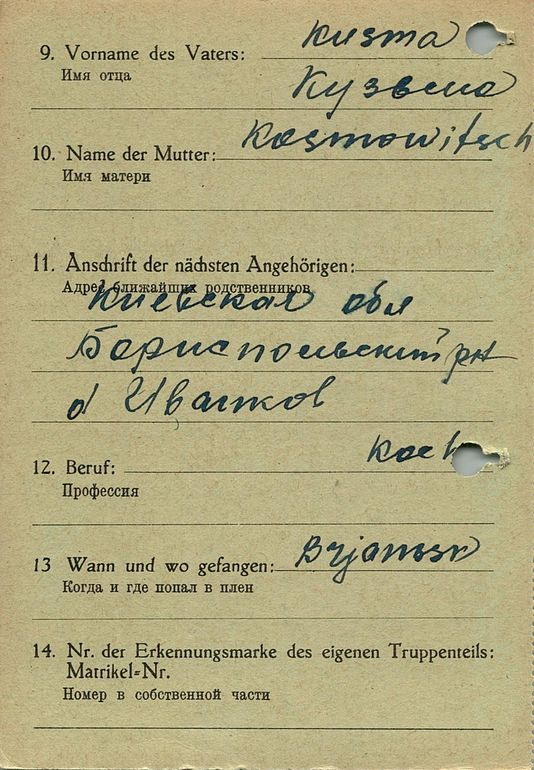 9. Vorname des Vaters: Kusma
Имя отца
Кузьма
10. Name der Mutter: Kosmowitsch
Имя матери
11. Anschrift der nächsten Angehörigen:
Адрес ближайших родственников
Киевская обл
Бориспольский рн
д Иванков
12. Beruf: Koch
Профессия
13 Wann und wo gefangen: Brjansk
Когда и где попал в плен
14. Nr. der Erkennungsmarke des eigenen Truppenteils:
Matrikel-Nr.
Номер в собственной части